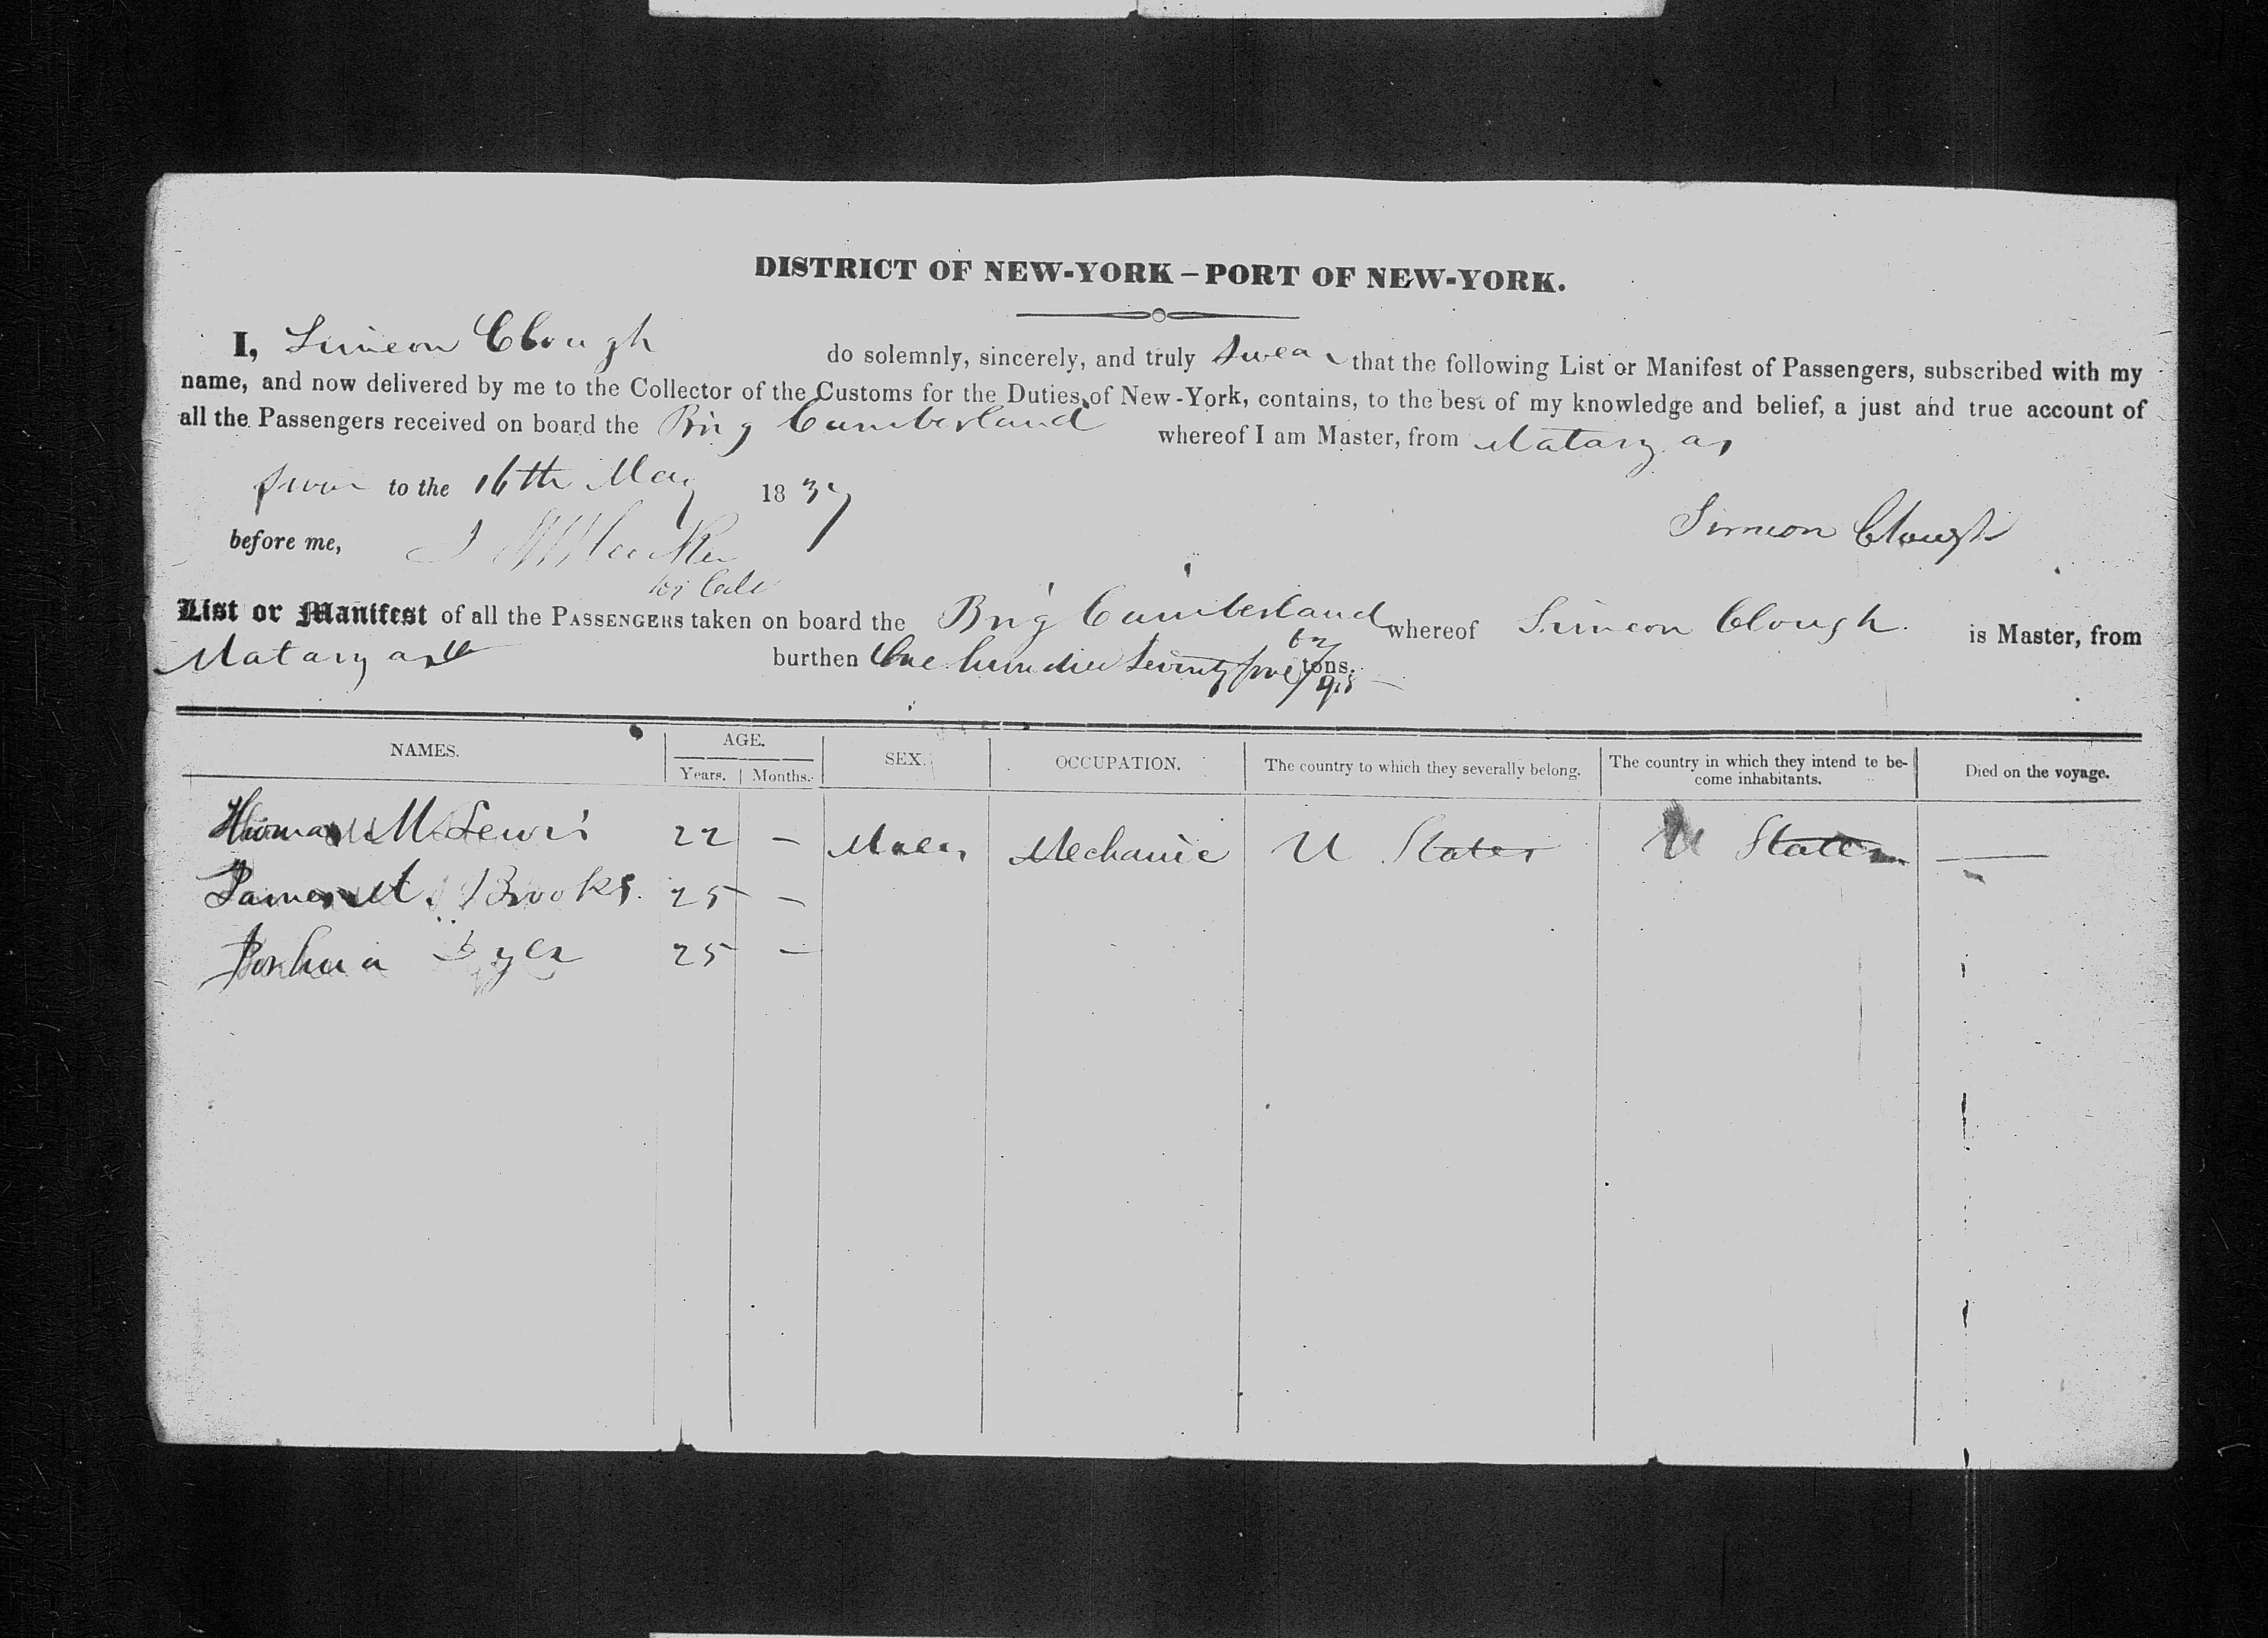 DISTRICT OF NEW-YORK – PORT OF NEW-YORK.
I, Simeon Clough do solemnly, sincerely, and truly swear that the following List or Manifest of Passengers, subscribed with my
name, and now delivered by me to the Collector of the Customs for the Duties of New-York, contains, to the best of my knowledge and belief, a just and true account of
all the Passengers received on board the Brig Cumberland whereof I am Master, from Matanzas
Sworn to the 16th May 1837
Simeon Clough
before me,
List or Manifest of all the PASSENGERS taken on board the Brig Cumberland whereof Simeon Clough is Master, from
Matanzas burthen One hundred Seventy five tons.
NAMES. AGE. SEX. OCCUPATION. The country to which they severally belong. The country in which they intend te be-
come inhabitants. Died on the voyage.
Years. Months.
Thomas M Lewis 22 – Males Mechanic U States U States —
James A. Brooks. 25 –
Joshua Dyer 25 –